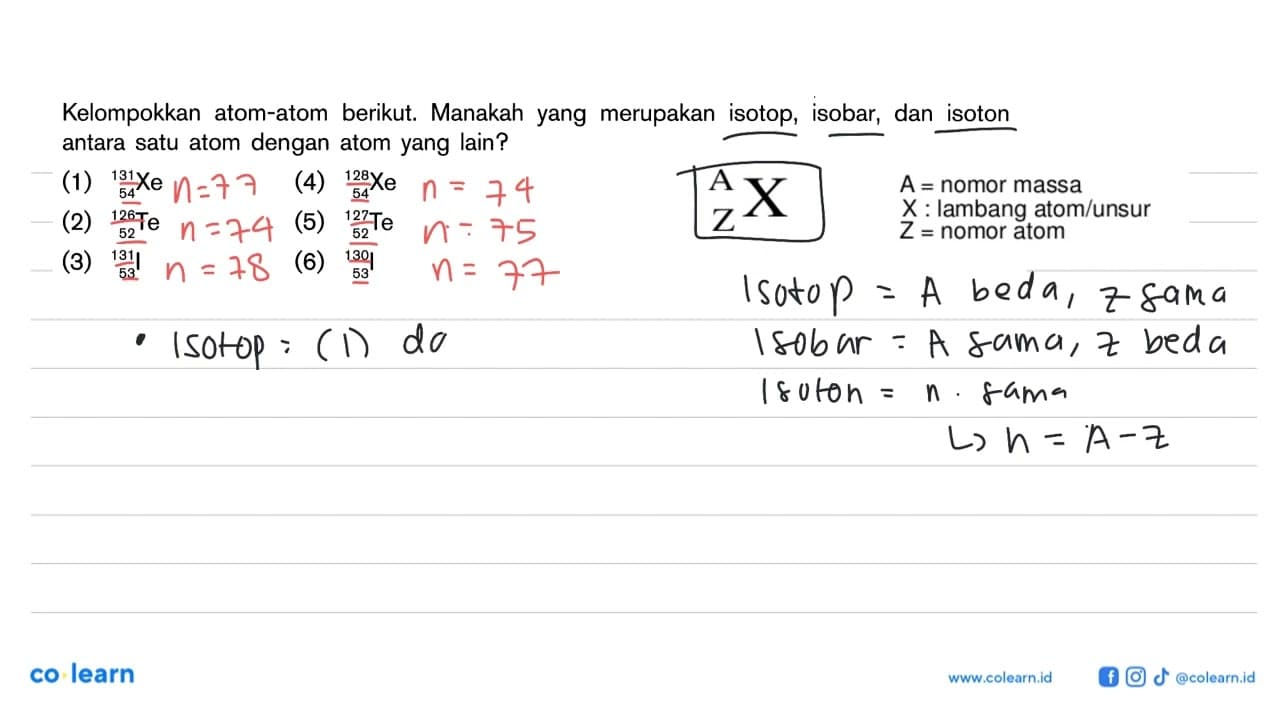 Kelompokkan atom-atom berikut. Manakah yang merupakan isotop, isobar, dan isoton
antara satu atom dengan atom yang lain?
(1) 131 54 Xe n=77 (4) 128 54 Xe n = 74
(2) 126 52 Te n=74 (5) 127 52 Te n = 75
(3) 131 53 I n = 78 (6) 130 53 I n = 77
A Z X
A = nomor massa
X : lambang atom/unsur
Z = nomor atom
Isotop = A beda, Z sama
Isobar = A sama, Z beda
Isoton = n. sama
↳ n = A - Z
• Isotop = (1) da
co learn
www.colearn.id @colearn.id